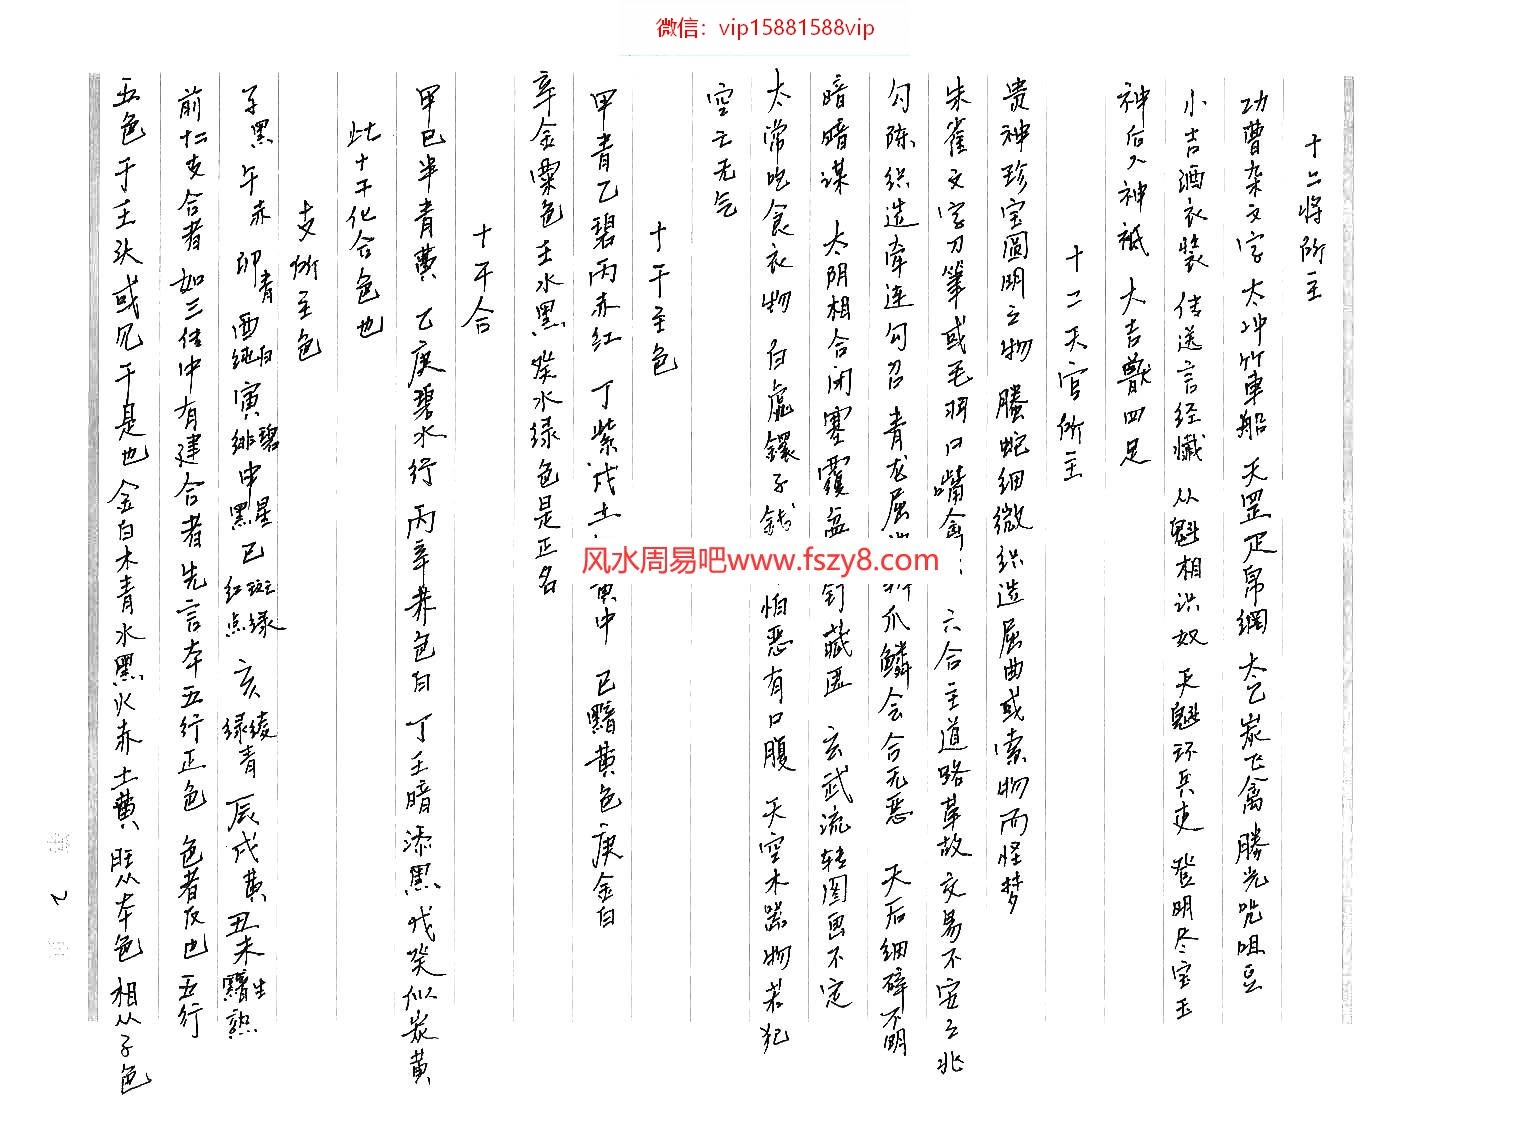 微信：vip15881588vip
十二将所主
功曹杂文字 太冲竹車船 天罡疋帛網 太乙炭飞禽 勝光咒咀豆
小吉酒衣裝 传送言经懺 从魁相识奴 天魁环兵吏 登明尽宝玉
神后入神祗 大吉獸四足
十二天官所主
贵神珍宝圖明之物 螣蛇细微织造屈曲或索物而怪梦
朱雀文字刀筆或毛羽口嘴 六合主道路革故交易不安之兆
勾陈织造牵連勾召 青龙屈 爪鳞会合无恶 天后细碎不明
暗暗謀 太阴相合闭塞覆盆 釘藏匿 玄武流转图画不定
太常吃食衣物 白虎鐶子 怕恶有口腹 天空木器物若犯
空亡无气
十干主色
甲青乙碧丙赤红 丁紫戊土 黄中 己黯黄色庚金白
辛金粟色壬水黑 癸水绿色是正名
十干合
甲己半青黄 乙庚碧水行 丙辛 色白 丁壬暗添黑 戊癸似炭黄
此十干化合色也
支所主色
子黑 午赤 卯青 酉纯白 寅绯碧 申黑星 巳红点斑绿 亥绿綾青 辰戌黄 丑未黯生熟
前十二支合者 如三传中有建合者 先言本五行正色 色者反也 五行
五色于壬 或见干是也 金白木青水黑火赤土黄 旺从本色 相从子色
风水周易吧www.fszy8.com